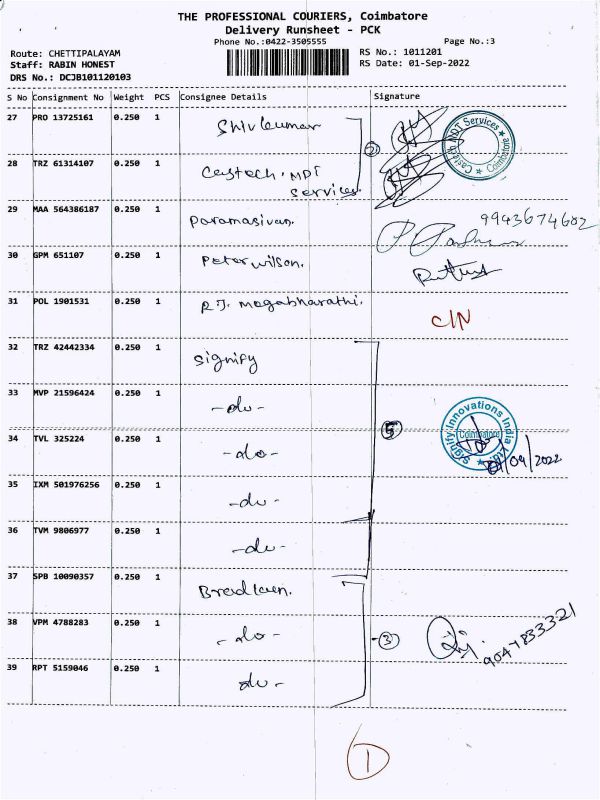 THE PROFESSIONAL COURIERS, Coimbatore
Delivery Runsheet - PCK
Phone No.:0422-3505555 Page No.:3
Route: CHETTIPALAYAM RS No.: 1011201
Staff: RABIN HONEST RS Date: 01-Sep-2022
DRS No.: DCJB101120103
S No Consignment No Weight PCS Consignee Details Signature
27 PRO 13725161 0.250 1 Shivkumar
28 TRZ 61314107 0.250 1 Castech, MDT
Services. 2
Castech MDT Services Coimbatore
29 MAA 564386187 0.250 1 Paramasivan. 9943674602
30 GPM 651107 0.250 1 Peter wilson.
31 POL 1901531 0.250 1 R.J. Magabharathi. C/N
32 TRZ 42442334 0.250 1 Signify
33 MVP 21596424 0.250 1 -do-
34 TVL 325224 0.250 1 -do- 5
Signify Innovations India Ltd. Coimbatore
01/09/2022
35 IXM 501976256 0.250 1 -do-
36 TVM 9806977 0.250 1 -do-
37 SPB 10090357 0.250 1
38 VPM 4788283 0.250 1 -do- -3 9047833321
39 RPT 5159046 0.250 1 do-
1